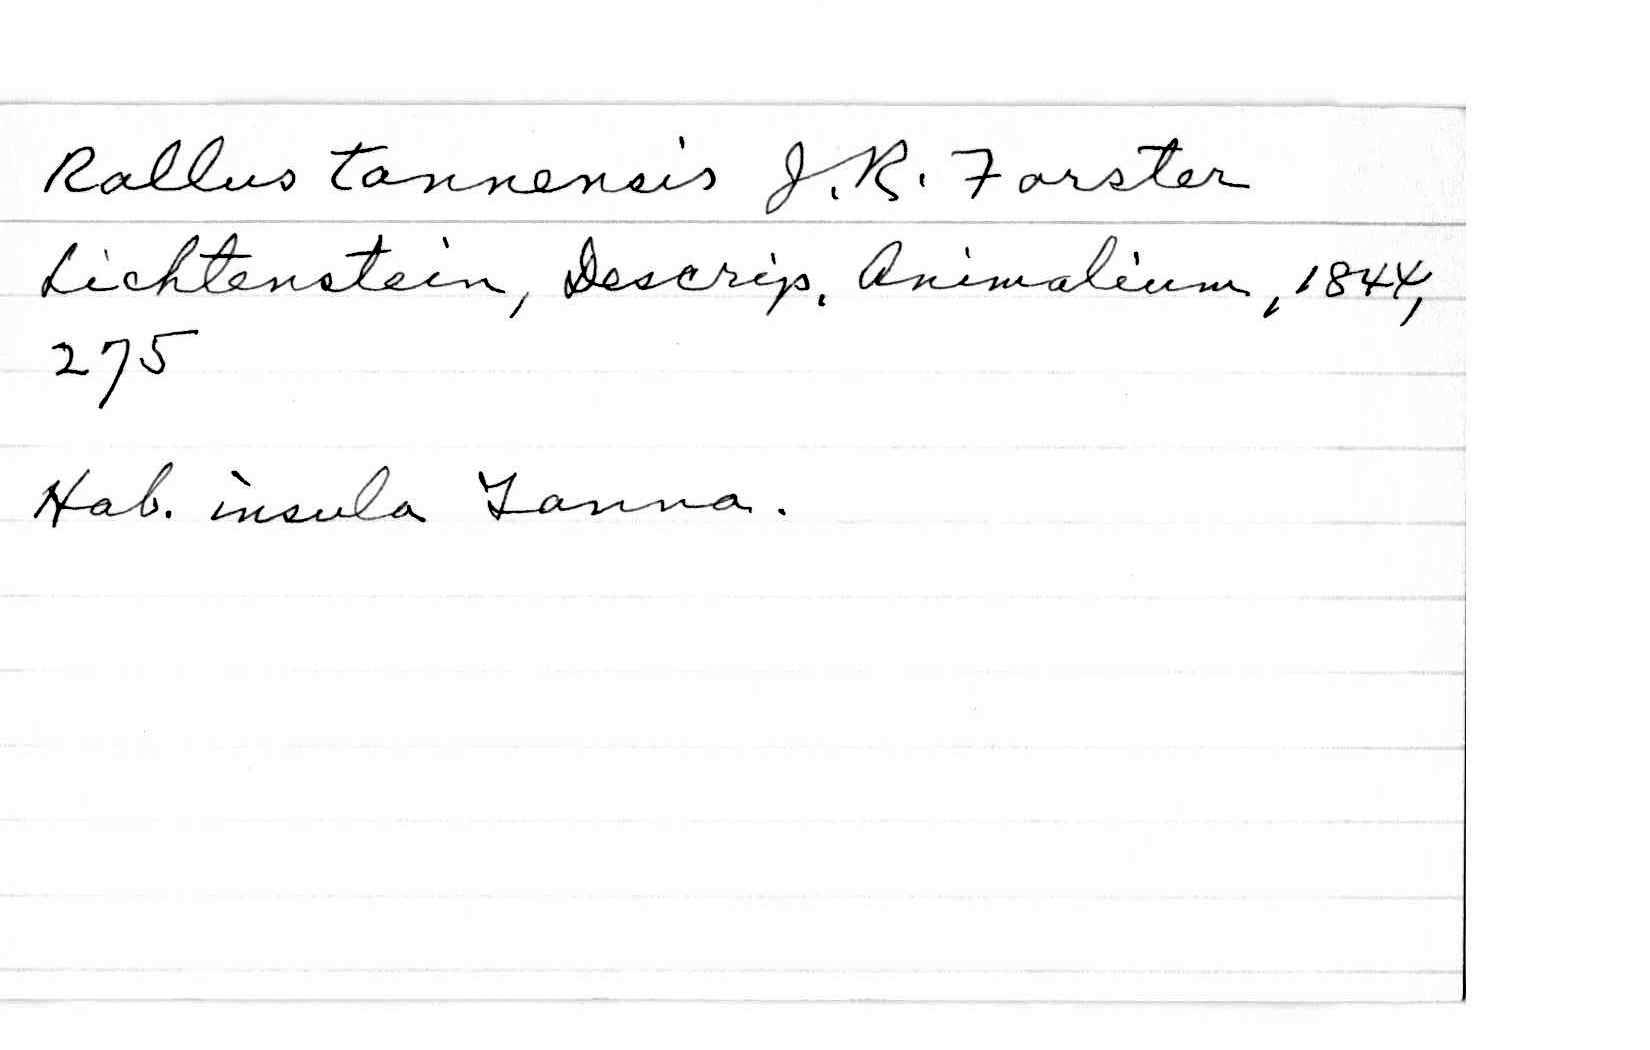 Rallus tannensis J. R. Forster
Lichtenstein, Descrip. Animalium, 1844,
275
Hab. insula Tanna.